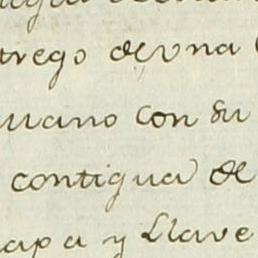 trego de una
mano con su
contigua de
apa y llave